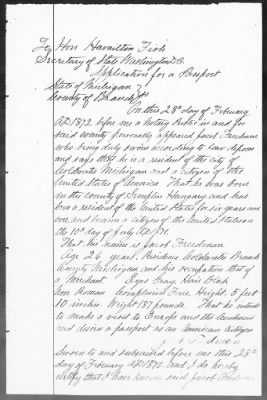 To Hon Hamilton Fish
Secretary of State Washington D.C.
Application for a Passport
State of Michigan
County of Branch
On this 28th day of February
AD 1872 before me a notary Public in and for
said county personally appeared Jacob Friedman
who being duly sworn according to law deposes
and says that he is a resident of the city of
Coldwater Michigan and a citizen of the
United States of America That he was born
in the county of Hungary and has
been a resident of the United States for six years and
over, and became a citizen of the United States on
the 10th day of July AD 1871.
That his name is Jacob Friedman
Age 26 years, Residence Coldwater Branch
County Michigan and his occupation that of
a Merchant Eyes Gray Hair Black
Nose Roman Complexion Fair Height 5 feet
10 inches Weight 187 pounds That he intends
to make a visit to Europe and the Continent
and desires a passport as an American citizen
Sworn to and subscribed before me this 28th
day of February AD 1872 and I do hereby
certify that I have known said Jacob Friedman